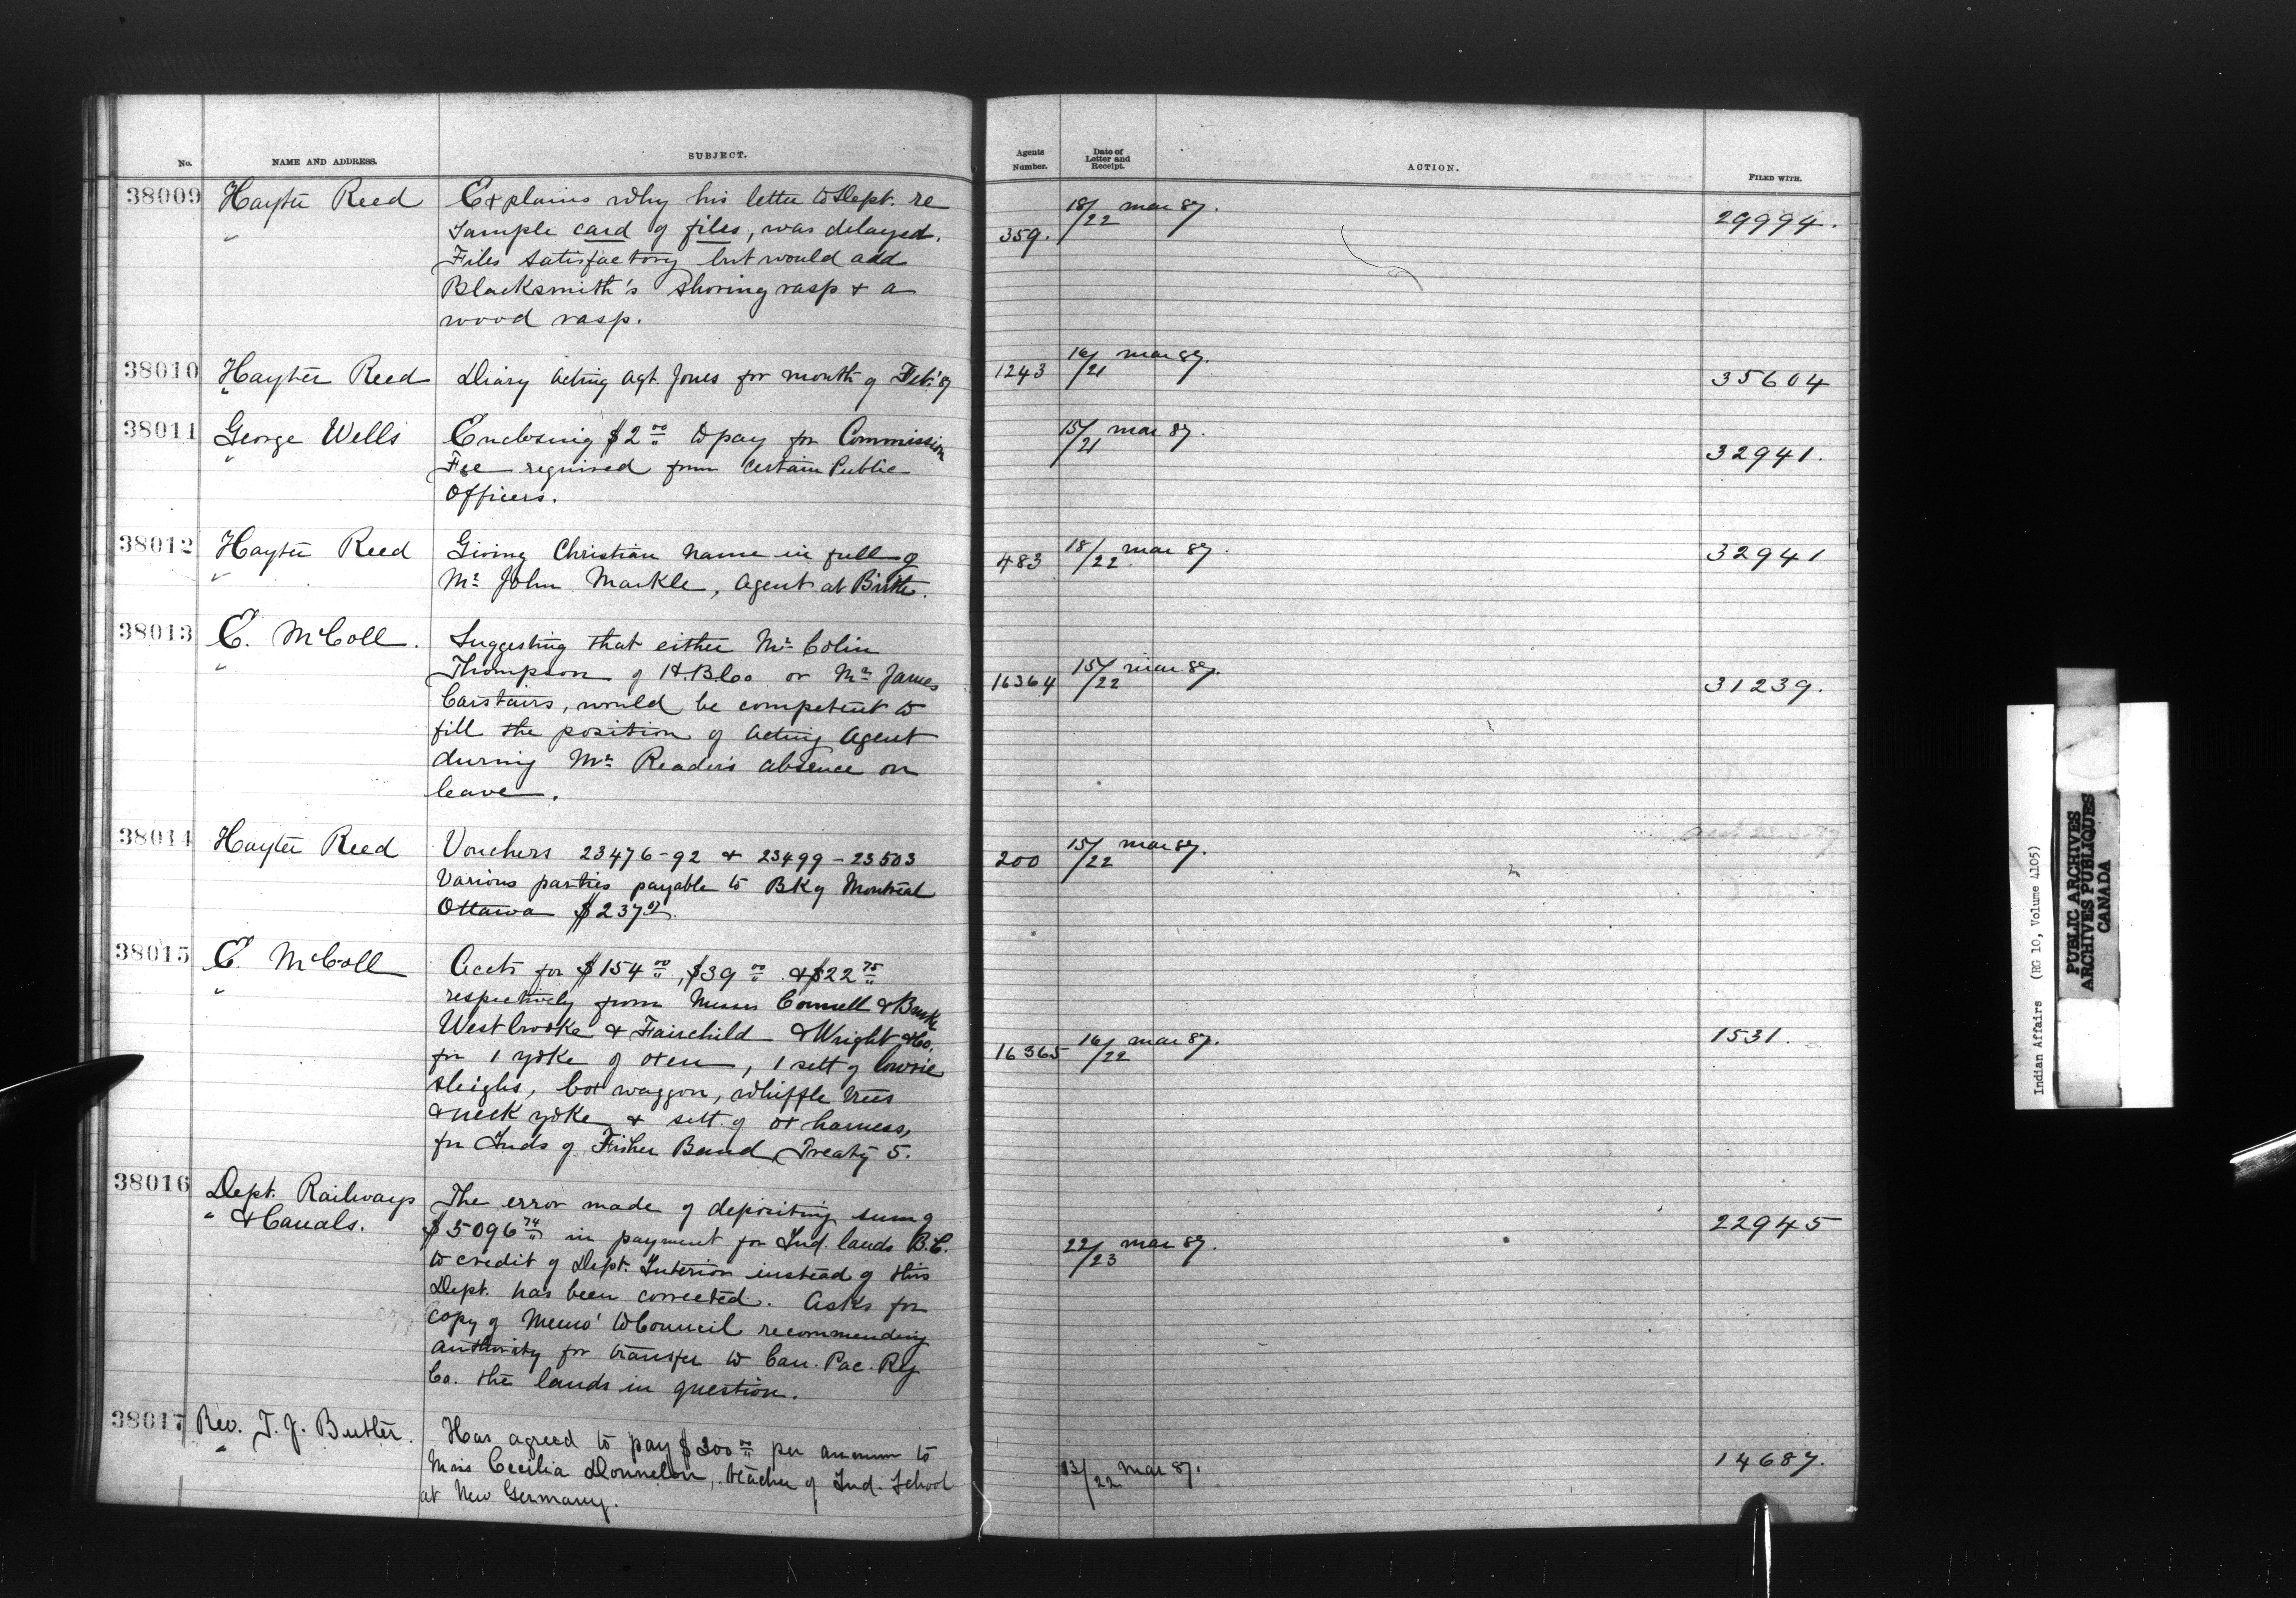 No.
NAME AND ADDRESS.
SUBJECT.
Agents Number.
Date of Letter and Receipt.
ACTION.
FILED WITH.
38009
Hayter Reed
"
Explains why his letter to Dept. re
Sample card of files, was delayed.
Files satisfactory but would add
Blacksmith's shoeing rasp & a
wood rasp.
359.
18/22 Mar 87.
29994.
38010
Hayter Reed
"
Diary Acting Agt. Jones for month of Feb. '87
1243
16/21 Mar 87.
35604
38011
George Wells
"
Enclosing $2 00 to pay for Commission
Fee required from certain Public
Officers.
15/21 Mar 87.
32941.
38012
Hayter Reed
"
Giving Christian name in full of
Mr John Markle, Agent at Birtle.
483
18/22 Mar 87.
32941
38013
E. McColl.
"
Suggesting that either Mr Colin
Thompson of H.B.Co or Mr James
Carstairs, would be competent to
fill the position of Acting Agent
during Mr Reader's absence on
leave.
16364
15/22 Mar 87.
31239.
38014
Hayter Reed
Vouchers 23476-92 & 23499-23503
Various parties payable to Bk of Montreal
Ottawa $237
200
15/22 Mar 87.
38015
E. McColl
"
Accts for $154 00, $39 00 & $22 75
respectively from Messrs Connell & Burke
Westbrooke & Fairchild & Wright & Co.
for 1 yoke of oxen, 1 sett of lowrie
sleighs, box waggon, whiffle trees
& neck yoke & sett of ox harness,
for Inds of Fisher Band, Treaty 5.
16365
16/22 Mar 87.
1531.
38016
Dept. Railways
" & Canals.
The error made of depositing sum of
$5096 74 in payment for Ind. lands B.C.
to credit of Dept. Interior instead of this
Dept. has been corrected. Asks for
copy of Memo' to Council recommending
authority for transfer to Can. Pac. Ry
Co. the lands in question.
22/23 Mar 87.
22945
38017
Rev. T. J. Butler.
"
Has agreed to pay $200 00 per annum to
Miss Cecilia Donnelan, teacher of Ind. School
at New Germany.
13/22 Mar 87.
14687.
Indian Affairs (RG 10, Volume 4105)
PUBLIC ARCHIVES
ARCHIVES PUBLIQUES
CANADA